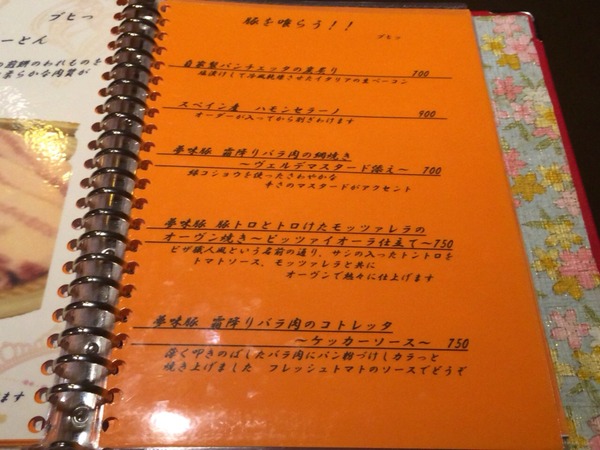 ブヒっ
ーとん
豚を喰らう！！
ブヒッ
自家製パンチェッタの炭炙り 700
塩漬けして冷風乾燥させたイタリアの生ベーコン
スペイン産 ハモンセラーノ 900
オーダーが入ってから削ぎわけます
夢味豚 霜降りバラ肉の網焼き
～ヴェルデマスタード添え～ 700
緑コショウを使ったさわやかな
辛さのマスタードがアクセント
夢味豚 豚トロとトロけたモッツァレラの
オーヴン焼き～ピッツァイオーラ仕立て～750
ピザ職人風という名前の通り、サシの入ったトントロを
トマトソース、モッツァレラと共に
オーヴンで熱々に仕上げます
夢味豚 霜降りバラ肉のコトレッタ
～ケッカーソース～ 750
薄く叩きのばしたバラ肉にパン粉づけしカラっと
焼き上げました フレッシュトマトのソースでどうぞ
ます